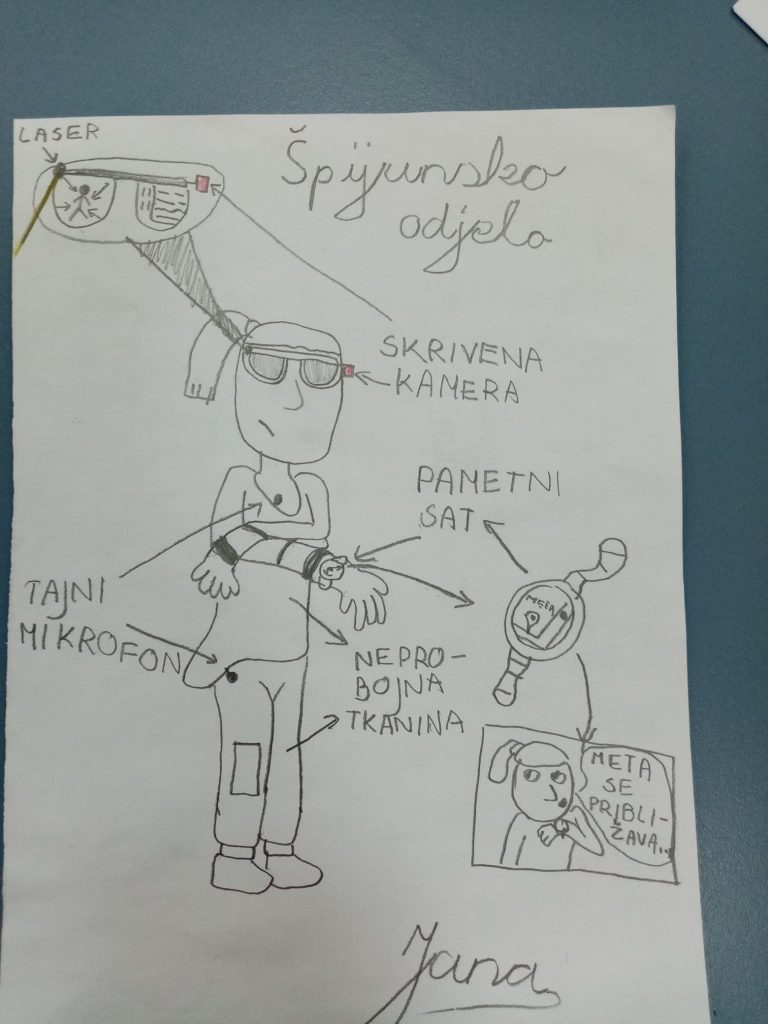 LASER
Špijunsko
odjelo
SKRIVENA
KAMERA
PAMETNI
SAT
TAJNI
MIKROFON
META
NEPRO-
BOJNA
TKANINA
META
SE
PRIBLI-
ŽAVA...
Jana